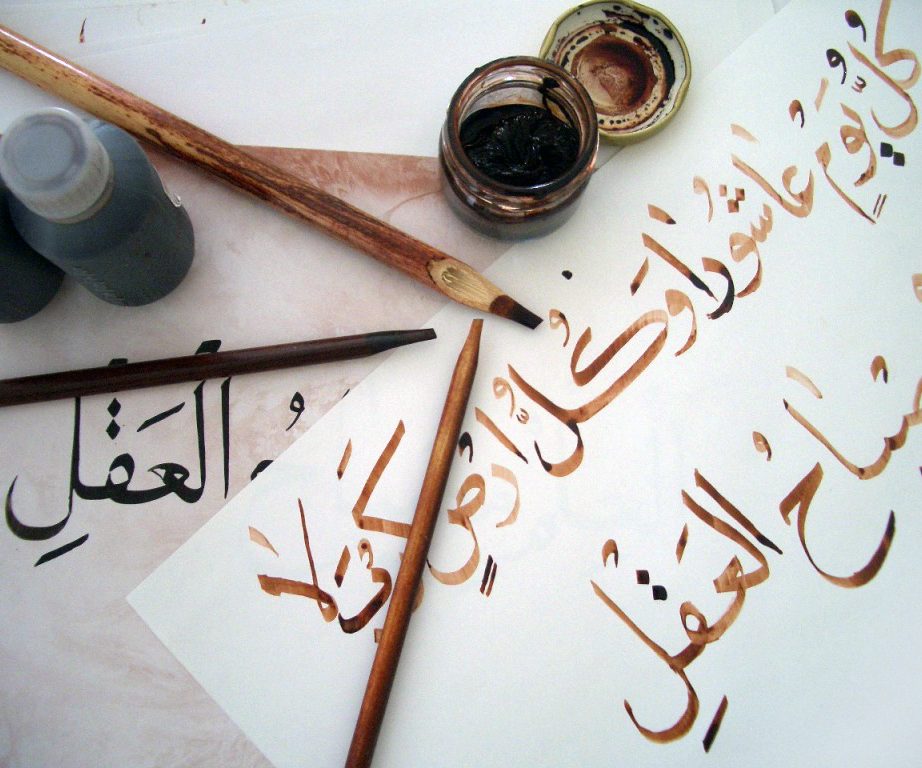 كُلُّ يَوْمٍ عَاشُورَا وَكُلُّ اَرْضٍ كَربَلا
صبَاحُ الْعَقْلِ
الْعَقْلِ